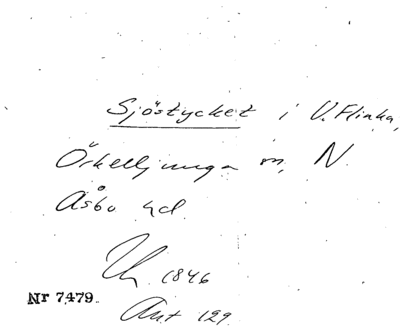 Sjöstycket i V. Flinka,
Örkelljunga sn, N.
Åsbo hd.
1846
Nr 7479.
Akt 129